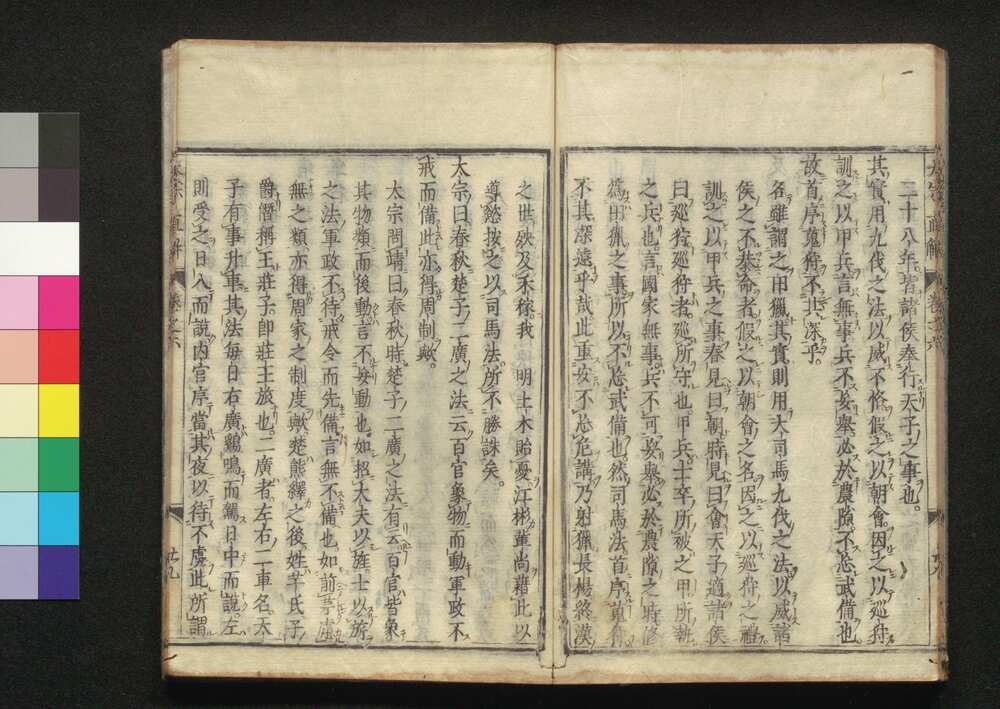 二十八年皆諸侯奉行天子之事也
其實用九伐之法以威不恪假之以朝會因之以巡狩
訓之以甲兵言無事兵不妄舉必於農隙不忘武備也
故首序蒐狩不其深乎
名雖謂之田獵其實則用大司馬九伐之法以威諸
侯之不恭命者假之以朝會之名因之以巡狩之禮
訓之以甲兵之事春見曰朝時見曰會天子適諸侯
曰巡狩巡狩者巡所守也甲兵士卒所被之甲所執
之兵也言國家無事兵不可妄舉必於農隙之時修
田獵之事所以不忘武備也然司馬法首序蒐狩
不其深遠乎哉此重安不忘危講乃射獵長楊終漢
之世殃及禾稼我 明土木貽憂江彬輩尚藉此以
導慾按之以司馬法所不勝誅矣
太宗曰春秋楚子二廣之法云百官象物而動軍政不
戒而備此亦得周制歟
太宗問靖曰春秋時楚子二廣之法有云百官皆象
其物類而後動言不妄動也如招大夫以旌士以旂
之法軍政不待戒令而先備言無不備也如前茅慮
無之類亦得周家之制度歟楚熊繹之後姓芊氏子
爵僭稱王莊子即莊王旅也二廣者左右二車名太
子有事升車其法每日右廣鷄鳴而駕日中而說左
則受之日入而說內官序當其夜以待不虞此所謂
直解
卷之六
廿九